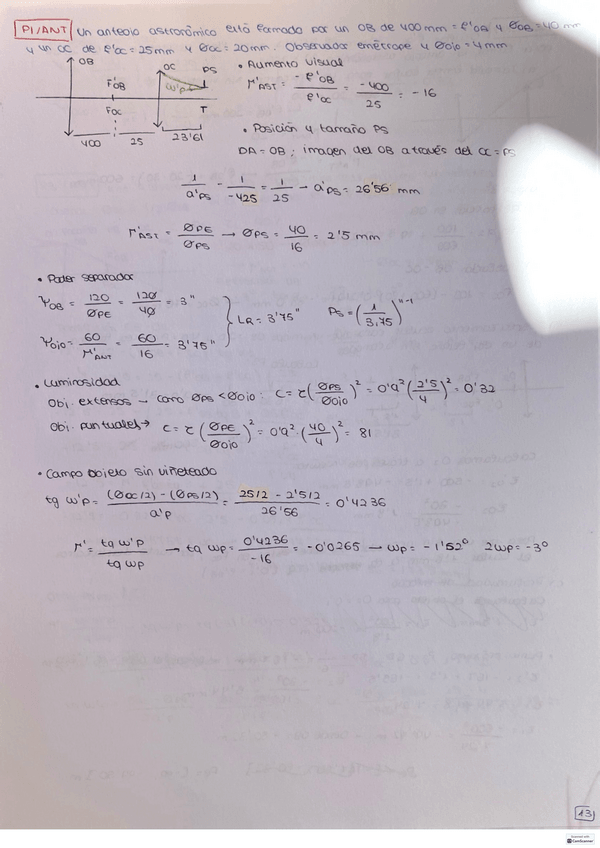 P1/ANT Un anteojo astronómico está formado por un OB de 400mm = f'OB y ØOB = 40mm
y un OC de f'OC = 25mm y ØOC = 20mm. Observador emétrope y Øojo = 4mm.
OB OC PS
F'OB ω'p
FOC T
400 25 23'61
• Aumento visual
Γ'AST = -f'OB / f'OC = -400 / 25 = -16
• Posición y tamaño PS
DA = OB; imagen del OB a través del OC = PS
1/a'PS - 1/-425 = 1/25 → a'PS = 26'56 mm
Γ'AST = ØPE / ØPS → ØPS = 40/16 = 2'5 mm
• Poder separador
γOB = 120/ØPE = 120/40 = 3"
γojo = 60/Γ'ANT = 60/16 = 3'75"
} LR = 3'75" PS = (1/3,75)"⁻¹
• Luminosidad
Obj. extensos → como ØPS < Øojo: C = τ(ØPS/Øojo)² = 0'9²(2'5/4)² = 0'32
Obj. puntuales → C = τ(ØPE/Øojo)² = 0'9²·(40/4)² = 81
• Campo objeto sin viñeteado
tg ω'p = (ØOC/2) - (ØPS/2) / a'p = 25/2 - 2'5/2 / 26'56 = 0'4236
Γ' = tg ω'p / tg ωp → tg ωp = 0'4236 / -16 = -0'0265 → ωp = -1'52° 2ωp = -3°
13
Scanned with
CamScanner